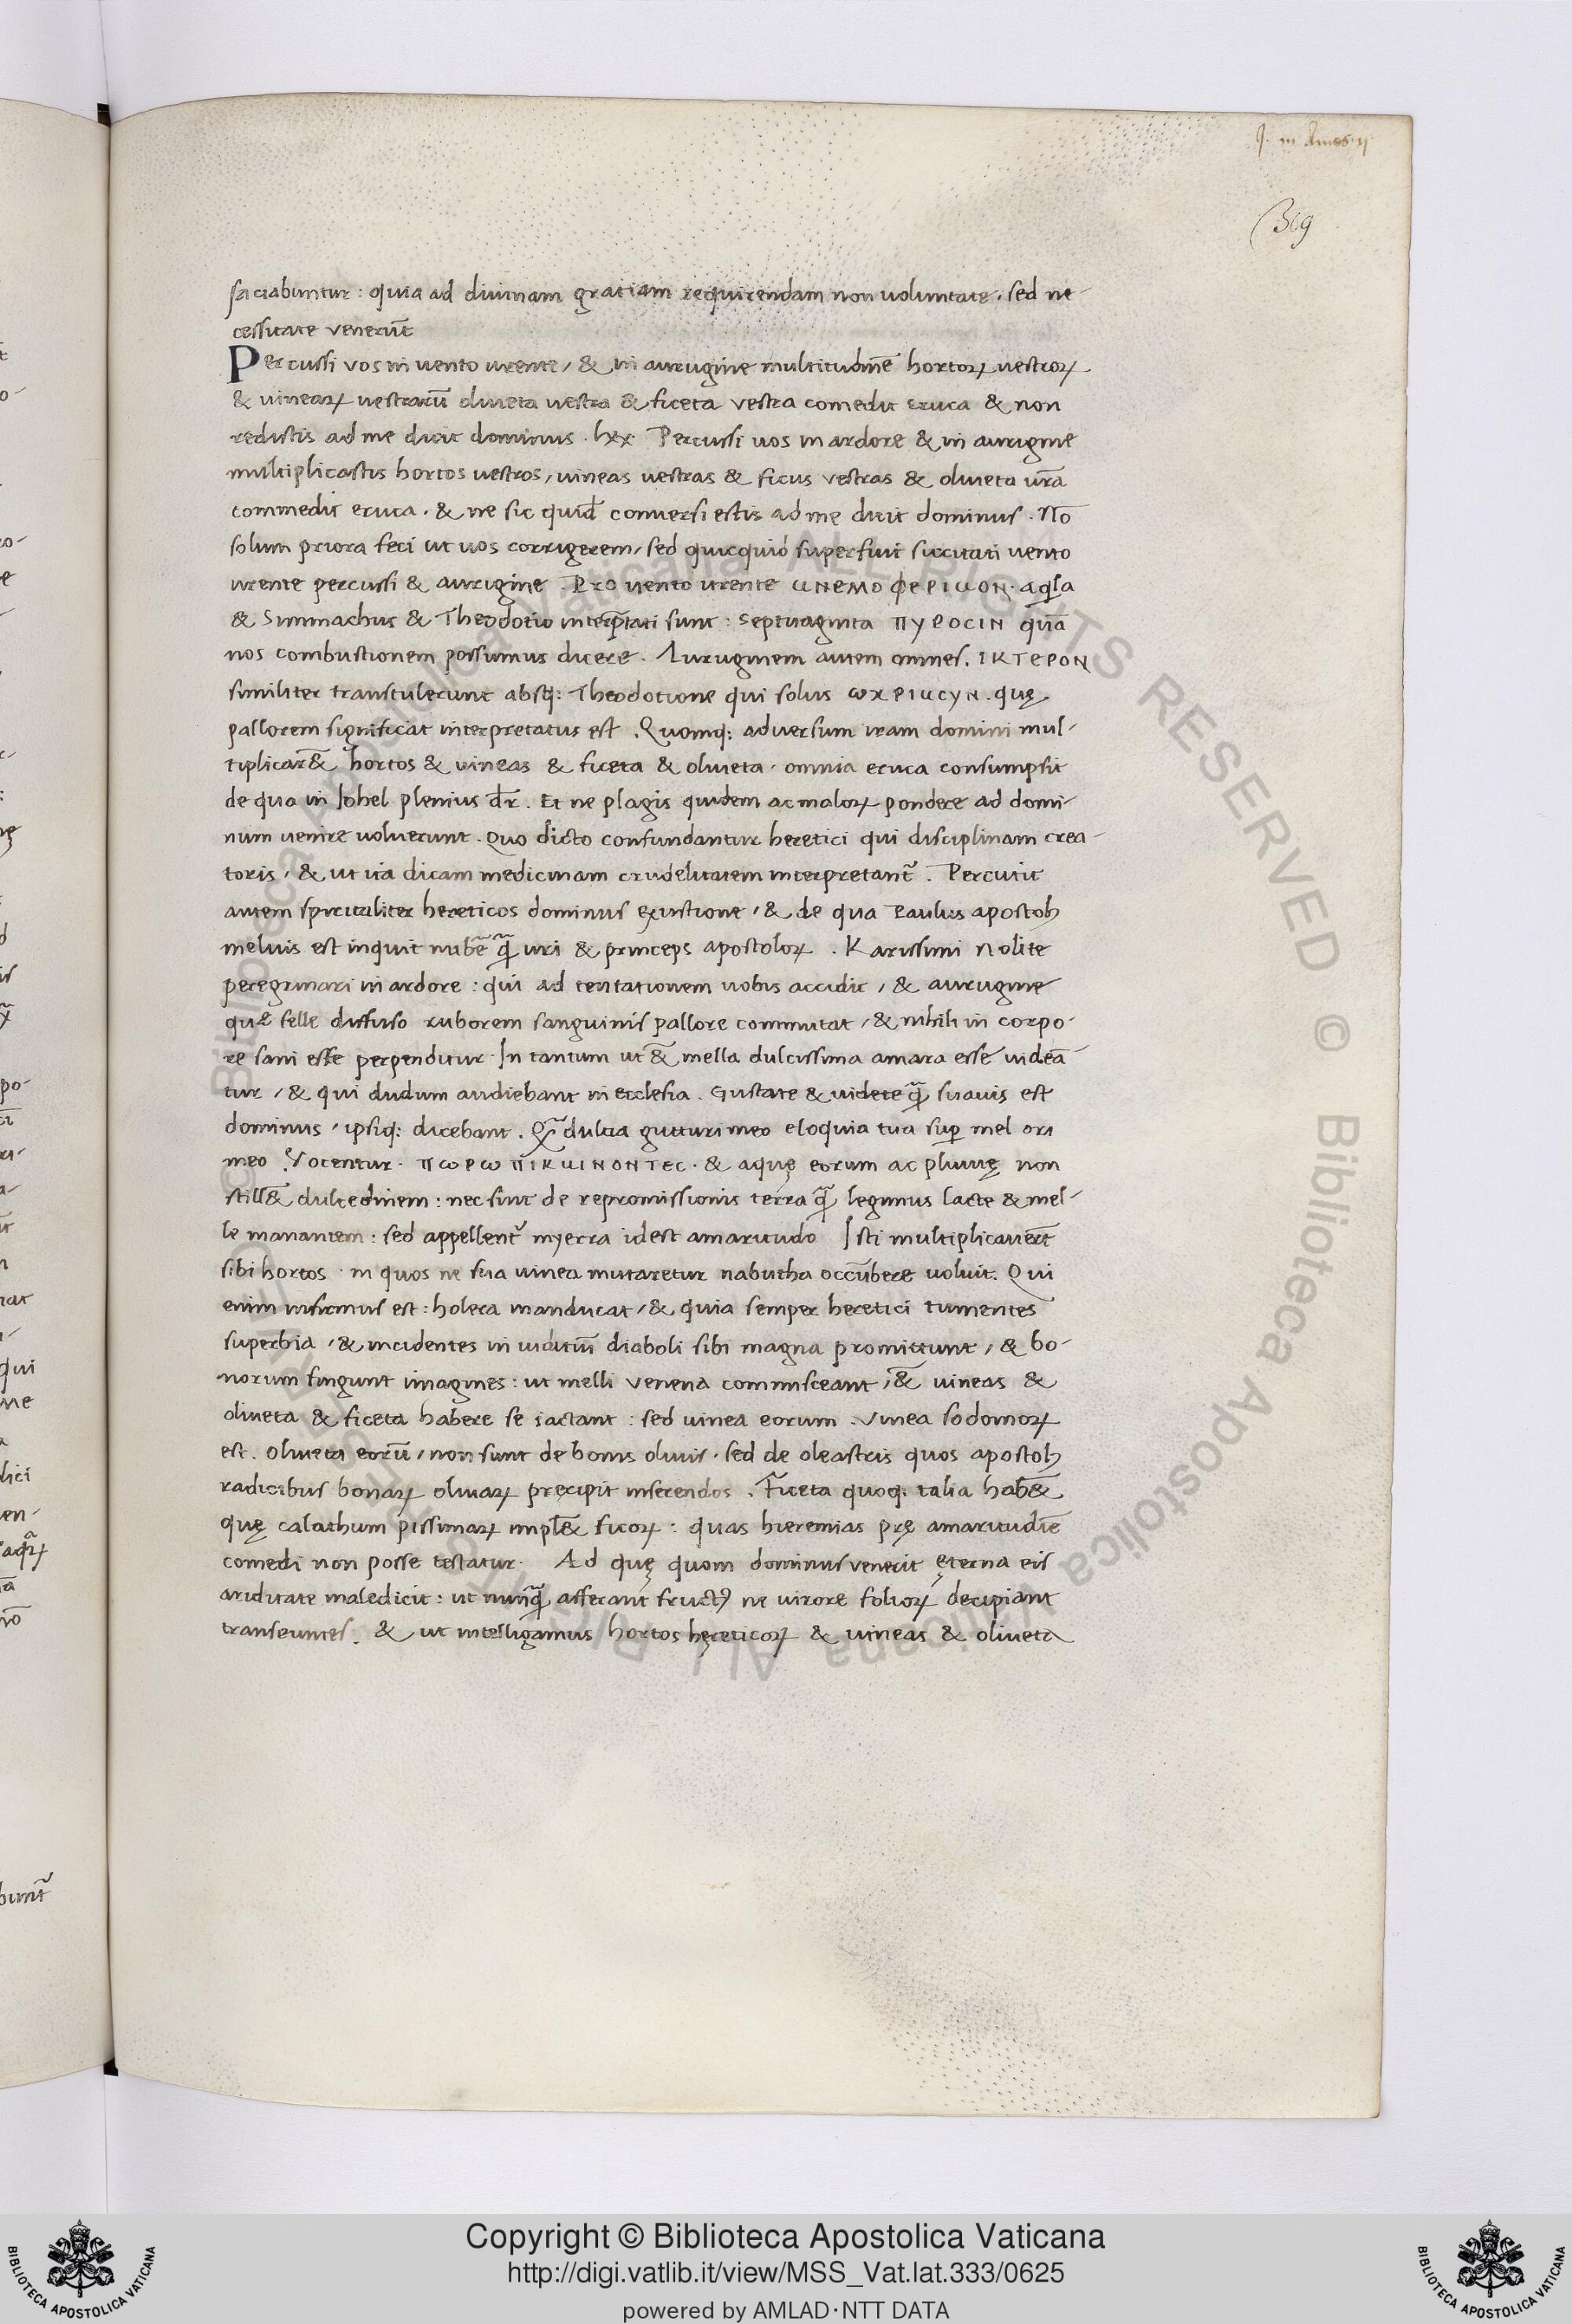 q. in Amos. ij
319
saciabuntur : quia ad diuinam gratiam requirendam non uoluntate . sed ne-
cessitate venerūt
Percussi vos in uento urente / & in aurugine multitudinē hortoꝝ uestroꝝ
& uineaꝝ uestrarū oliueta uestra & ficeta vestra comedit eruca & non
redistis ad me dicit dominus . lxx Percussi uos in ardore & in aurigine
multiplicastis hortos uestros / uineas uestras & ficus vestras & oliueta ur̄a
commedit eruca . & ne sic quid̄ conuersi estis ad me dicit dominus . Nō
solum priora feci ut uos corrigerem / sed quicquid superfuit siccitati uento
urente percussi & aurigine . Pro uento urente ανεμοφεριαον . aq̄la
& Simmachus & Theodotio interp̄tati sunt : septuaginta πυροσιν quā
nos combustionem possumus dicere . Auruginem autem omnes . ικτερον
similiter transtulerunt absq: Theodotione qui solus ωχριασυν . quę
pallorem significat interpretatus est . Quomq: aduersum iram domini mul-
tiplicar&̄ hortos & uineas & ficeta & oliueta . omnia eruca consumpsit
de qua in Iohel plenius dr̄ . Et ne plagis quidem ac maloꝝ pondere ad domi-
num uenire uoluerunt . Quo dicto confundantur heretici qui disciplinam crea-
toris / & ut ita dicam medicinam crudelitatem interpretant᷑ . Percutit
autem spiritaliter hereticos dominus exustione / & de qua Paulus apostoł
melius est inquit nubē q̄ uri & princeps apostoloꝝ . Karissimi Nolite
peregrinari in ardore : qui ad tentationem uobis accidit / & aurugine
que felle diffuso ruborem sanguinis pallore commutat / & nihili in corpo-
re sani esse perpenditur . In tantum ut &̄ mella dulcissima amara esse uideā-
tur / & qui dudum audiebant in ecclesia . Gustate & uidete q̄ suauis est
dominus / ipsiq: dicebant . Q̄ dulcia gutturi meo eloquia tua sup̄ mel ori
meo . Vocentur . πωρω πικραινοντες . & aquę eorum ac pluuię non
still&̄ dulcedinem : nec sint de repromissionis terra q̄ legimus lacte & mel-
le manantem : sed appellent᷑ myrra idest amaritudo Isti multiplicauerūt
sibi hortos . in quos ne sua uinea mutaretur nabutha occūbere uoluit . Qui
enim infirmus est : holera manducat / & quia semper heretici tumentes
superbia / & incidentes in iuditiū diaboli sibi magna promittunt / & bo-
norum fingunt imagines : ut melli venena commisceant / &̄ uineas &
oliueta & ficeta habere se iactant : sed uinea eorum . vinea sodomoꝝ
est . oliueta eorū / non sunt de bonis oliuis . sed de oleastris quos apostoł
radicibus bonaꝝ oliuaꝝ pręcipit inserendos . Ficeta quoq: talia hab&̄
quę calathum pissimaꝝ impl&̄ ficoꝝ : quas hieremias prę amaritudīe
comedi non posse testatur . Ad quę quom dominus venerit ęterna eis
ariditate maledicit : ut nunq̄ afferant fruct᷒ ne uirore folioꝝ decipiant
transeuntes . & ut intelligamus hortos hęreticoꝝ & uineas & oliueta
Copyright © Biblioteca Apostolica Vaticana
http://digi.vatlib.it/view/MSS_Vat.lat.333/0625
powered by AMLAD·NTT DATA